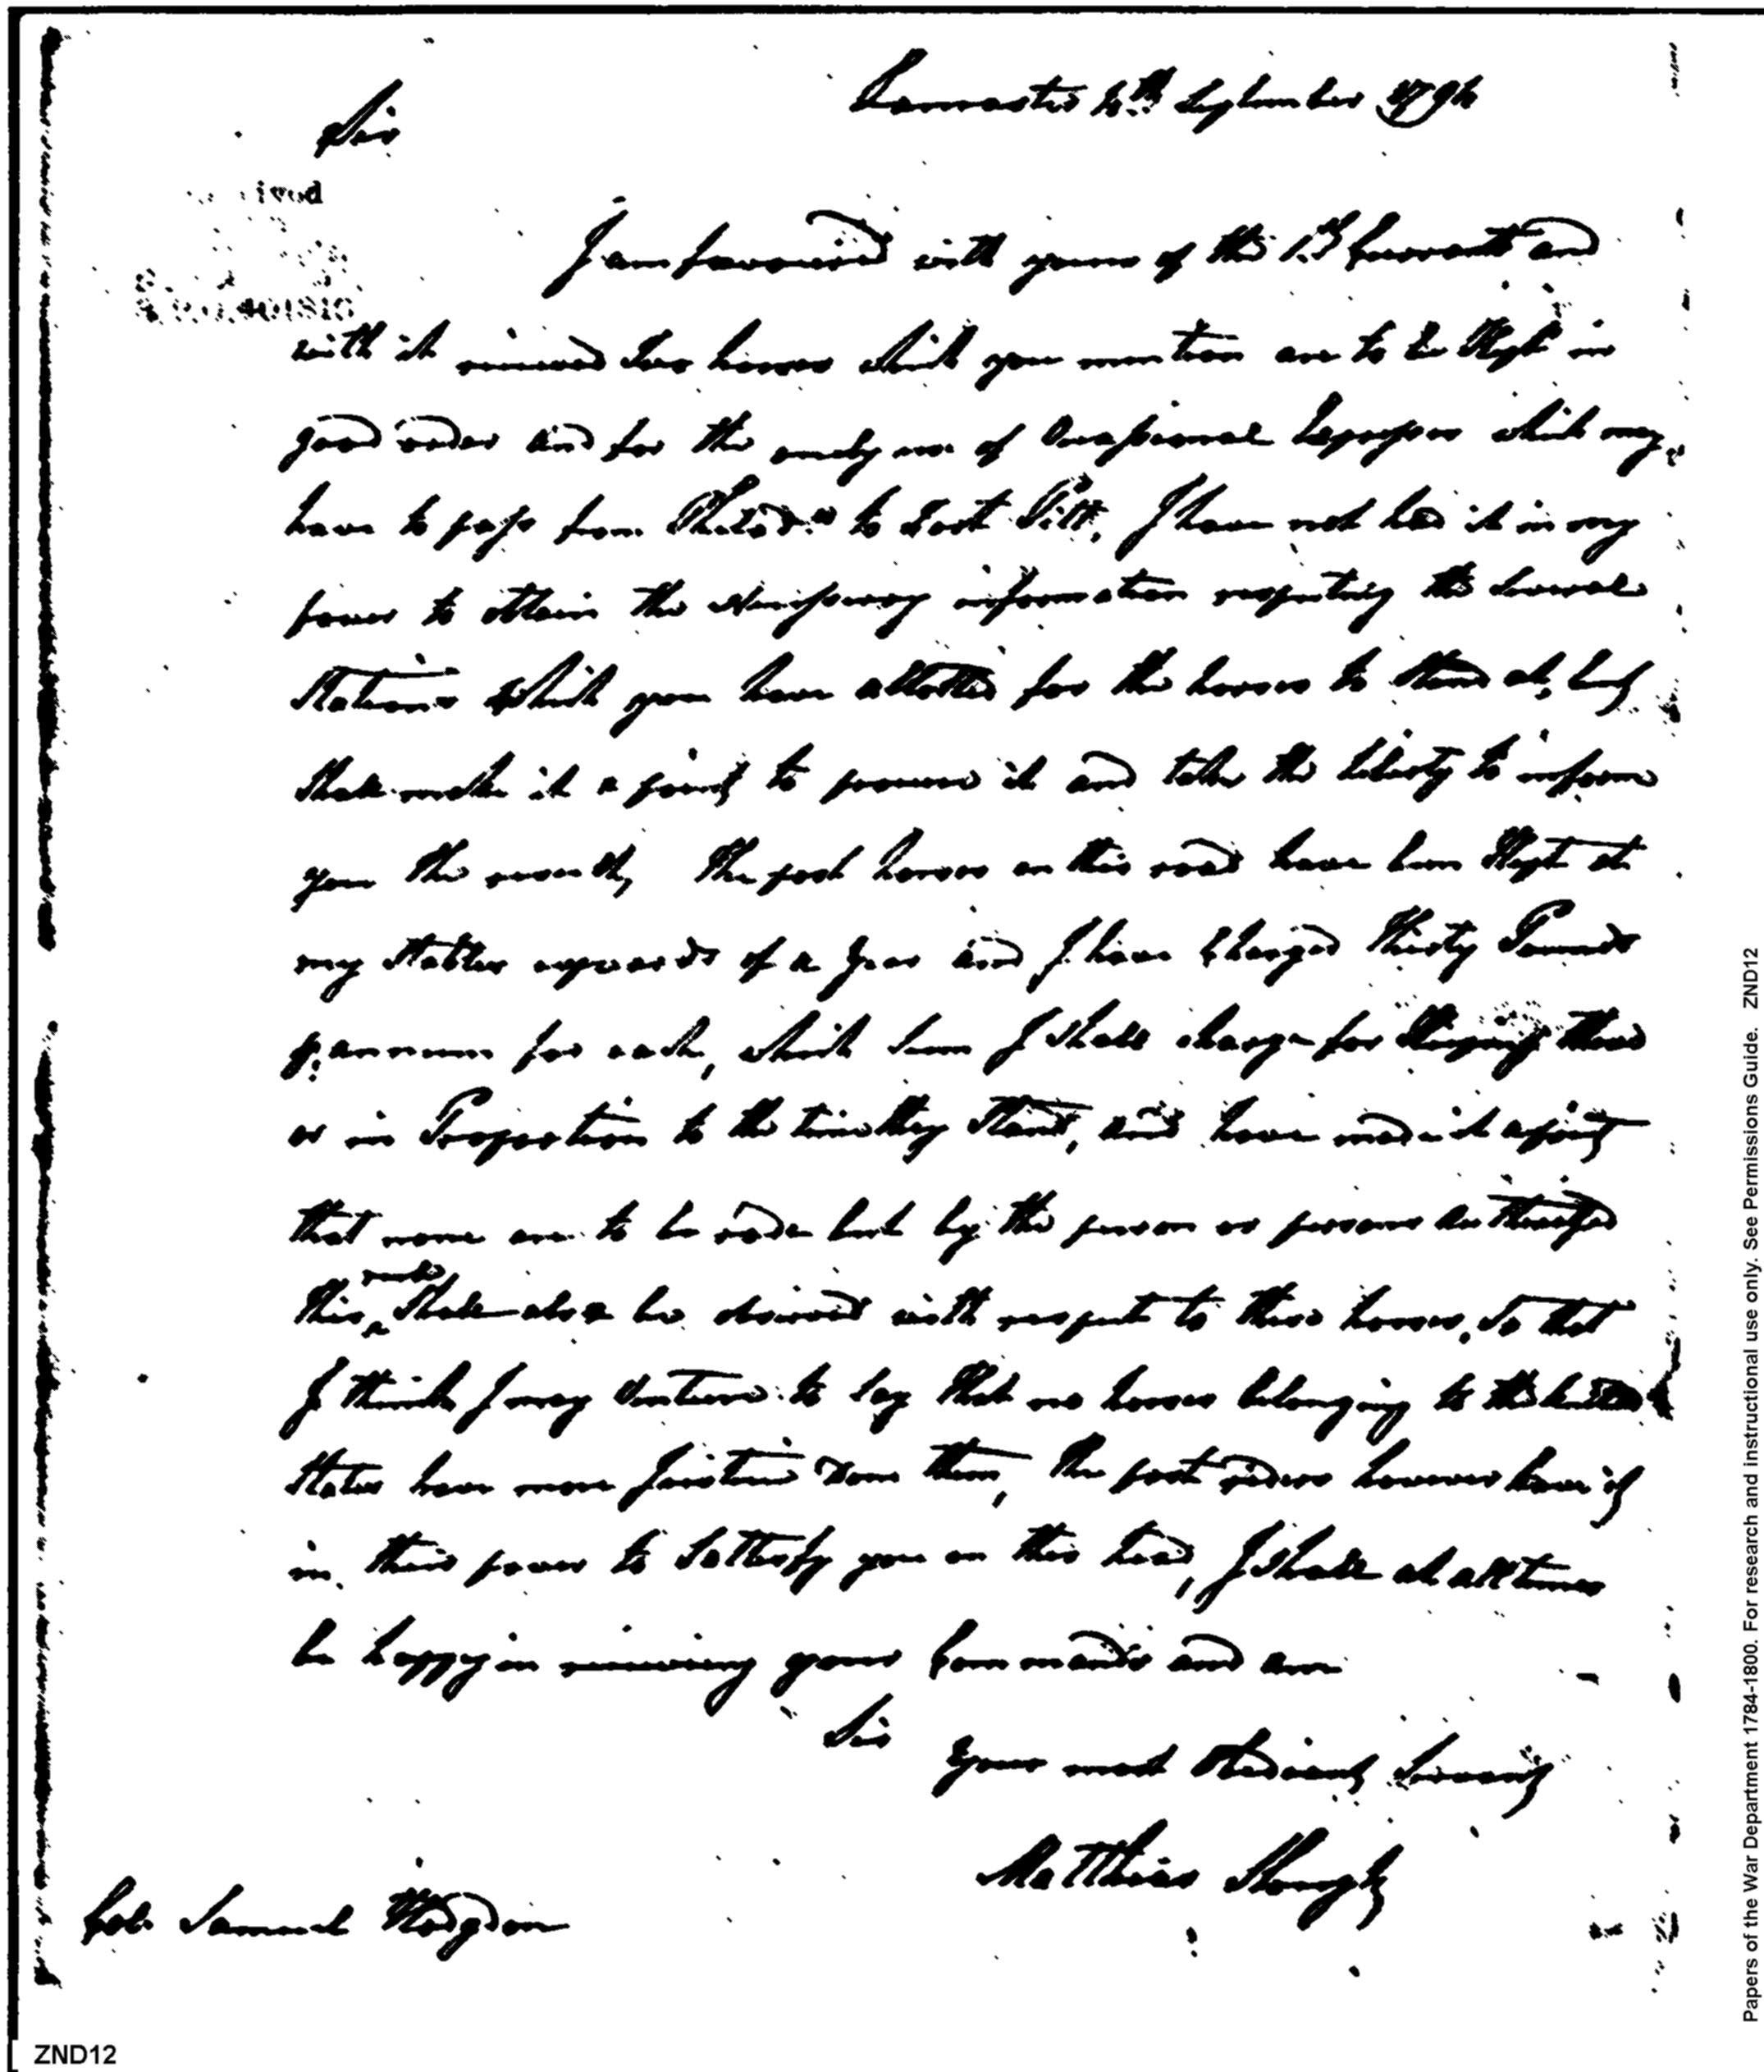 Lancaster 4th September 1794
Sir
ived
I am favoured with yours of the 1st Currant and
with it received two horses which you mention are to be Kept in
good order and for the only use of Occasional Expresses which may
have to pass from Philada to Fort Pitt, I have not had it in my
power to obtain the Necessary information respecting the several
Stations which you have allotted for the horses to stand at, but
shall make it a point to procure it and take the liberty to inform
you the result, The post horses on this road have been Kept at
my Stables upwards of a year and I have Charged thirty Pounds
p. annum for each, which sum I shall charge for Keeping these
or in Proportion to the time they Stand, and have made it a point
that none are to be rode but by the person or persons authorised
this rule shall also be observed with respect to these horses, so that
I think I may venture to say that no horses belonging to the United
States have more Justice done them, the post riders however have it
in their power to Sattisfy you on this head, I shall at all times
be happy in receiving your Commands and am
Sir
Your most Obedient Servant
Matthias Slough
Col. Samuel Hodgdon
ZND12
Papers of the War Department 1784-1800. For research and instructional use only. See Permissions Guide. ZND12